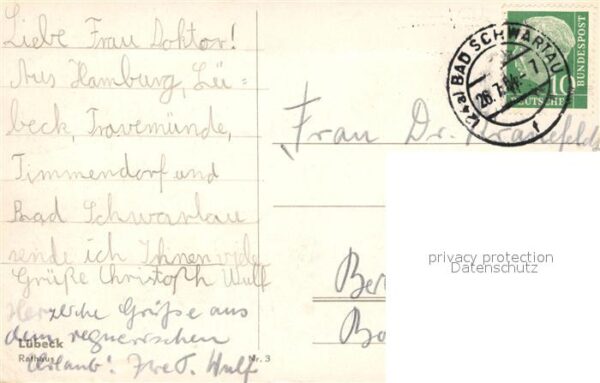 Liebe Frau Doktor!
Aus Hamburg, Lü-
beck, Travemünde,
Timmendorf und
Bad Schwartau
sende ich Ihnen viele
Grüße Christoph Wulf
Herzliche Grüße aus
dem regnerischen
Urlaub! Ihre T. Wulf
Lübeck
Rathaus
Nr. 3
(24a) BAD SCHWARTAU
1
26.7.
f
10
DEUTSCHE
BUNDESPOST
Frau Dr.
Ber
privacy protection
Datenschutz